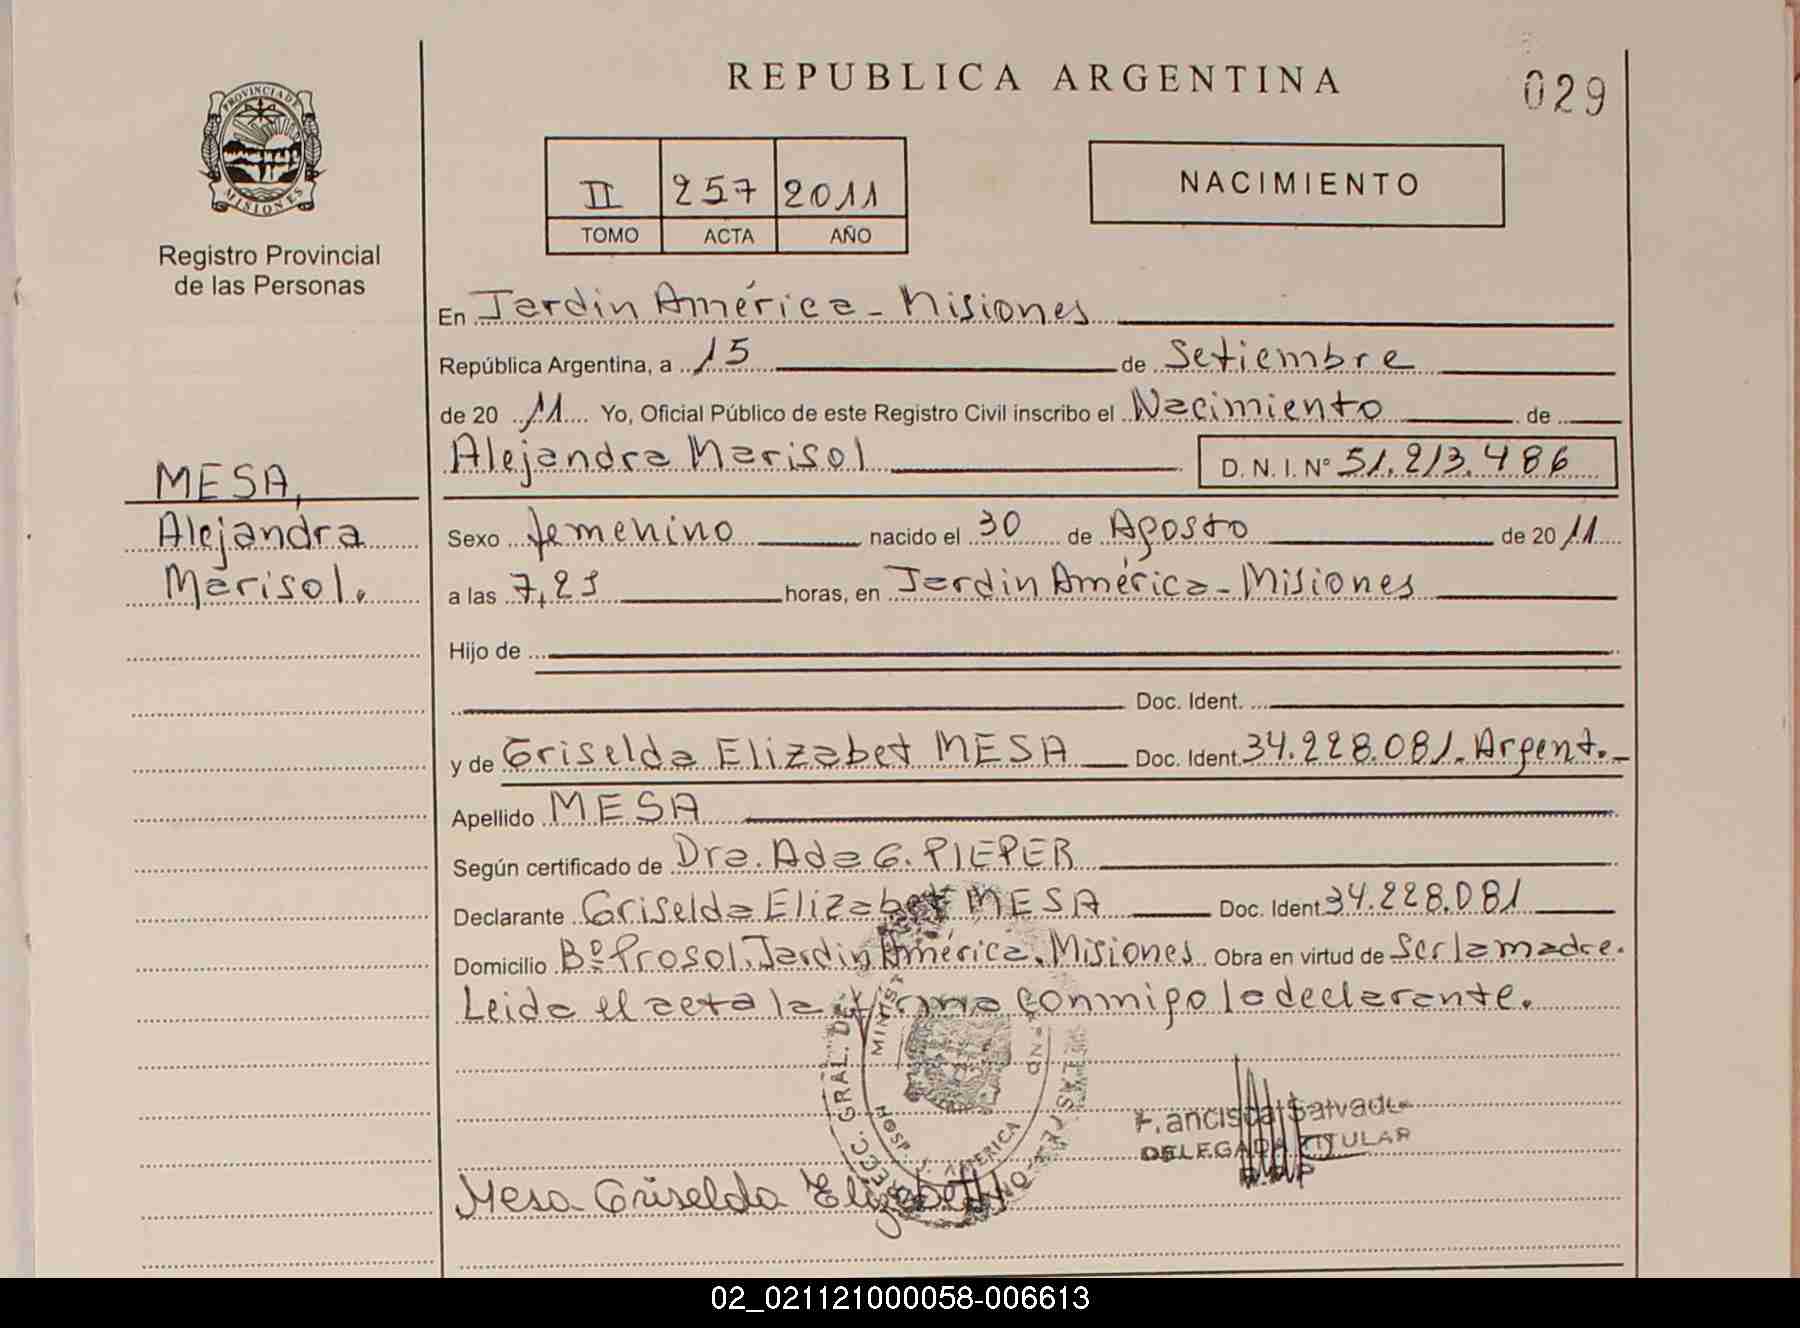 REPUBLICA ARGENTINA
029
PROVINCIA DE
MISIONES
Registro Provincial
de las Personas
II 257 2011
TOMO ACTA AÑO
NACIMIENTO
En Jardin América - Misiones
República Argentina, a 15 de Setiembre
de 20 11 Yo, Oficial Público de este Registro Civil inscribo el Nacimiento de
Alejandra Marisol D. N. I. Nº 51.213.486
MESA,
Alejandra
Marisol.
Sexo femenino nacido el 30 de Agosto de 20 11
a las 7,23 horas, en Jardin América - Misiones
Hijo de
Doc. Ident.
y de Griselda Elizabet MESA Doc. Ident. 34.228.081. Argent. -
Apellido MESA
Según certificado de Dra. Ada G. PIEPER
Declarante Griselda Elizabet MESA Doc. Ident. 34.228.081
Domicilio Bº Prosol, Jardin América. Misiones Obra en virtud de Ser la madre.
Leida el acta la firma conmigo la declarante.
DIRECC. GRAL. DE
HOSP. J. AMERICA
DELEGADA TITULAR
R.P.P
Mesa Griselda Elizabeth
02_021121000058-006613